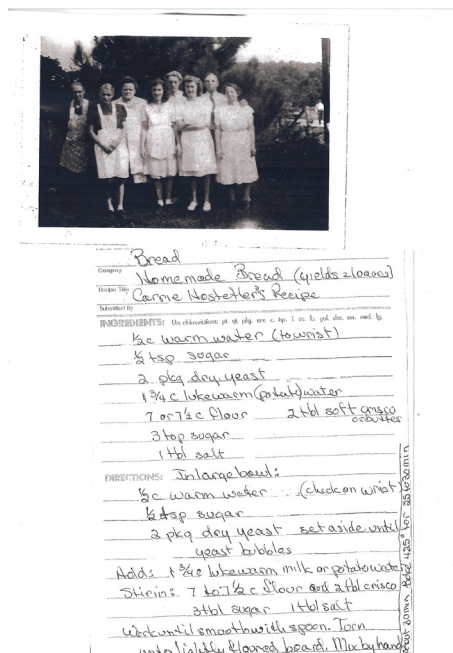 Bread
Category
Homemade Bread (yields 2 loaves)
Recipe Title
Carrie Hostetler's Recipe
Submitted By
INGREDIENTS: Use abbreviations: pt. qt. pkg. env. c. tsp. T. oz. lb. gal. doz. sm. med. lg.
½ c warm water (to wrist)
½ tsp sugar
2 pkg dry yeast
1 ¾ c lukewarm (potato) water
7 or 7½ c flour 2 tbl soft crisco
or butter
3 tbp sugar
1 tbl salt
DIRECTIONS: In large bowl:
½ c warm water (check on wrist)
½ tsp sugar
2 pkg dry yeast set aside until
yeast bubbles
Add: 1 ¾ c lukewarm milk or potato water
Stir in: 7 to 7½ c flour and 2 tbl crisco
3 tbl sugar 1 tbl salt
Work until smooth with spoon. Turn
onto lightly floured board. Mix by hand
about 20 min. Bake 425° for 25 to 30 min